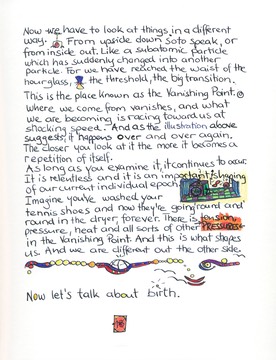 Now we have to look at things in a different
way. From upside down so to speak, or
from inside out. Like a subatomic particle
which has suddenly changed into another
particle. For we have reached the waist of the
hourglass, the threshold, the big transition.
This is the place known as the Vanishing Point.
Where we come from vanishes, and what
we are becoming is racing towards us at
shocking speed. And as the illustration above
suggests, it happens over and over again.
The closer you look at it the more it becomes a
repetition of itself.
As long as you examine it, it continues to occur.
It is relentless and it is an important shaping
of our current individual epoch.
Imagine you've washed your
tennis shoes and now they're going round and
round in the dryer, forever. There is tension,
pressure, heat and all sorts of other pressures
in the Vanishing Point. And this is what shapes
us. And we are different out the other side.
Now let's talk about birth.